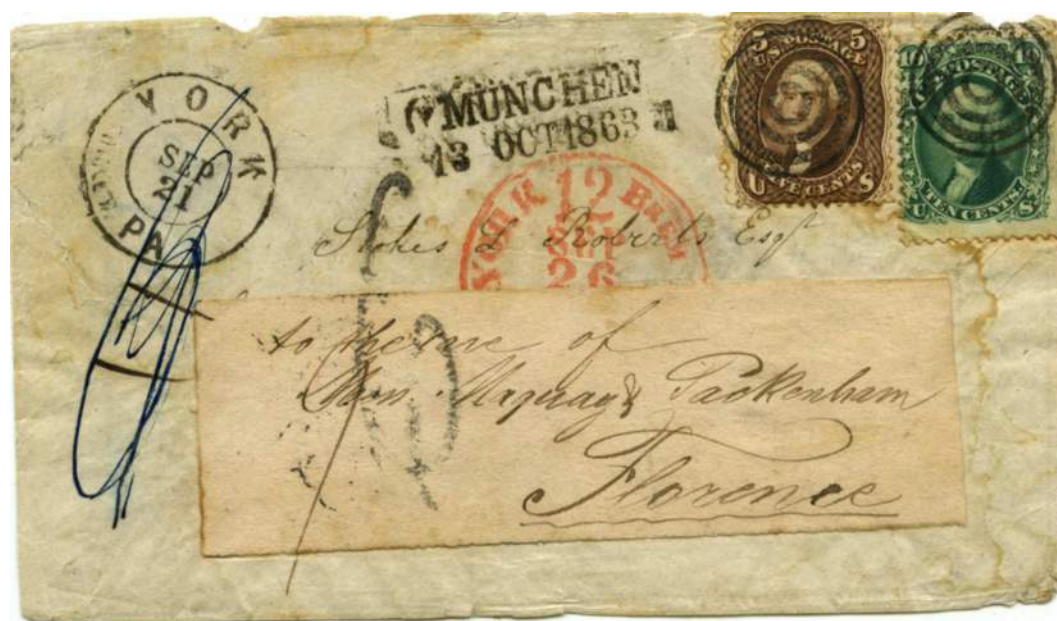 YORK
PA
SEP
21
MÜNCHEN
13 OCT 1863
5 5
U.S. POSTAGE
FIVE CENTS
U S
10 10
U.S. POSTAGE
TEN CENTS
U S
YORK 12 BREM
SEP
26
Stokes L. Roberts Esqr
to the care of
Mess. Maquay & Packenham
Florence